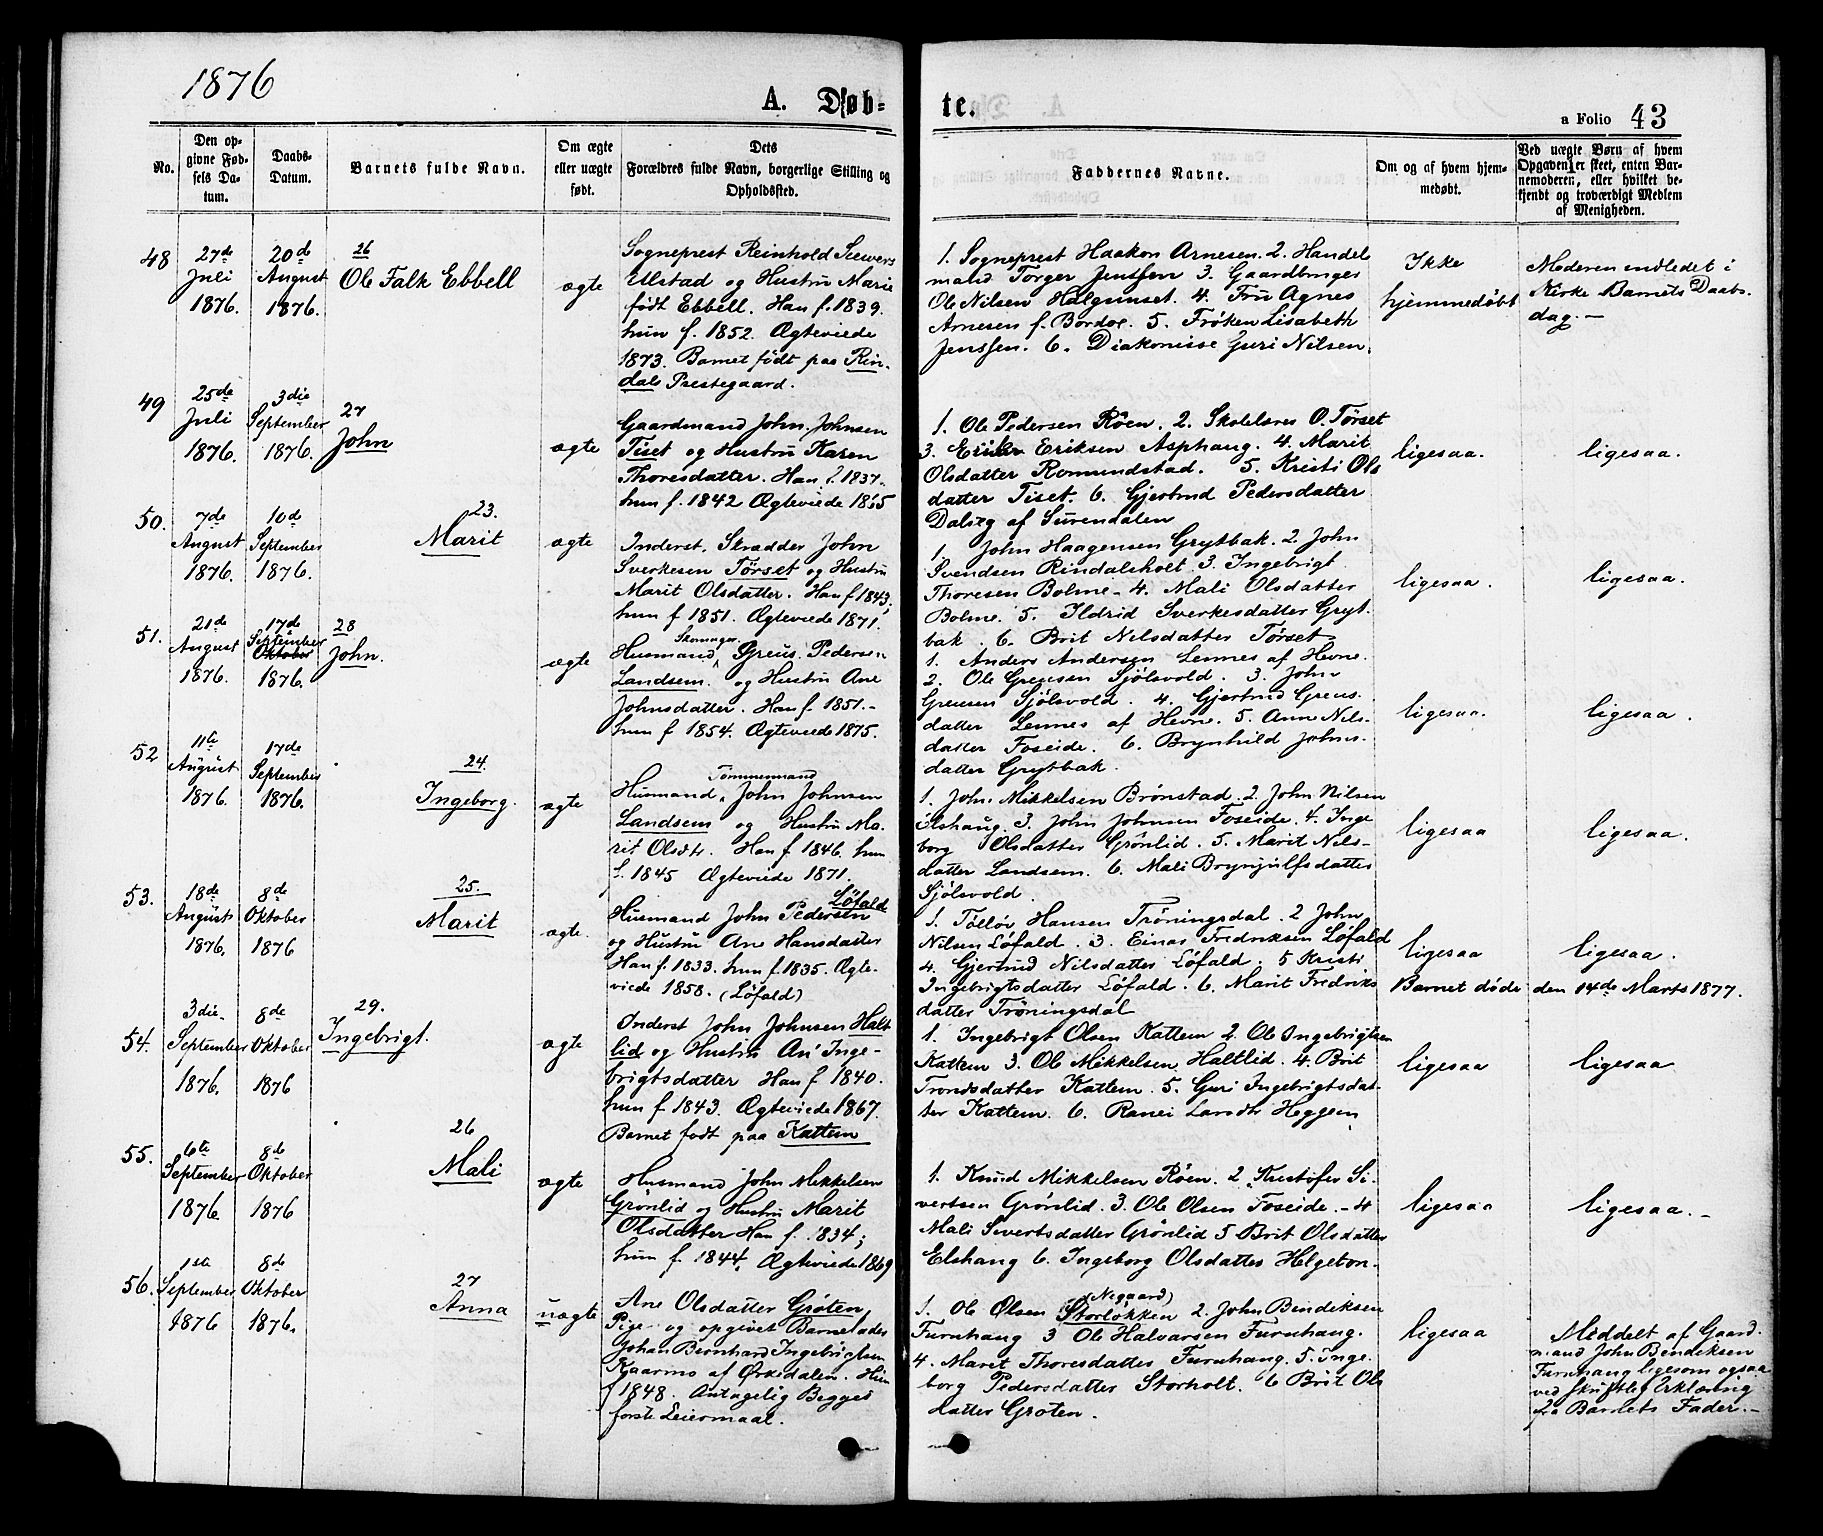 1876
A. Døb-
te.
a Folio 43
No.
Den op-
givne Fød-
sels Da-
tum.
Daabs-
Datum.
Barnets fulde Navn.
Om ægte
eller uægte
født.
Dets
Forældres fulde Navn, borgerlige Stilling og
Opholdssted.
Faddernes Navne.
Om og af hvem hjem-
medøbt.
Ved uægte Børn af hvem
Opgaven er skeet, enten Bar-
nemoderen, eller hvilket be-
kjendt og troværdigt Medlem
af Menigheden.
48
27de
Juli
1876.
20de
August
1876.
26
Ole Falk Ebbell
ægte
Sogneprest Reinhold Seewers
Ulstad og Hustru Marie
født Ebbell. Han f. 1839.
hun f. 1852. Ægteviede
1873. Barnet født paa Rin-
dals Prestegaard.
1. Sogneprest Haakon Arnesen. 2. Handel
mand Torger Jenssen 3. Gaardbruger
Ole Nilsen Halgunset. 4. Fru Agnes
Arnesen f. Bordoe. 5. Frøken Lisabeth
Jenssen. 6. Diakonisse Guri Nilsen.
Ikke
hjemmedøbt
Moderen indledet i
Kirke Barnets Daabs-
dag.-
49
25de
Juli
1876.
3die
September
1876.
27
John
ægte
Gaardmand John Johnsen
Tiset og Hustru Karen
Thoresdatter. Han f. 1837.
hun f. 1842 Ægteviede 1865
1. Ole Pedersen Röen. 2. Skolelærer O. Tørset
3. Erik Eriksen Asphaug. 4. Marit
Olsdatter Romundstad. 5. Kristi Ols
datter Tiset. 6. Gjertrud Pedersdatter
Dalseg af Surendalen
ligesaa.
ligesaa.
50.
7de
August
1876.
10de
September
1876.
23.
Marit
ægte
Inderst, Skrædder John
Sverkesen Tørset og Hustru
Marit Olsdatter. Han f 1843,
hun f 1851. Ægteviede 1871.
1. John Haagensen Grytbak. 2. John
Svendsen Rindalsholt. 3. Ingebrigt
Thoresen Bolme- 4. Mali Olsdatter
Bolme. 5. Ildrid Sverkesdatter Gryt-
bak. 6. Brit Nilsdatter Tørset
ligesaa.
ligesaa.
51.
21de
August
1876.
17de
September
Oktober
1876.
28
John.
ægte
Skomager
Husmand Greus Pedersen
Landsem. og Hustru Ane
Johnsdatter. Han f. 1851.-
hun f 1854. Ægteviede 1875.
1. Anders Andersen Lennes af Hevne.
2. Ole Greusen Sjølsvold. 3. John
Greusen Sjølsvold. 4. Gjertrud Greus-
datter Lennes af Hevne. 5. Ane Nils-
datter Foseide. 6. Brynhild Johns-
datter Grytbak.
ligesaa.
ligesaa.
52
11te
August
1876.
17de
September
1876.
24.
Ingeborg.
ægte
Tømmermand
Husmand, John Johnsen
Landsem og Hustru Ma-
rit Olsdtr. Han f 1846. hun
f. 1845 Ægteviede 1871.
1. John Mikkelsen Brønstad. 2. John Nilsen
Elshaug. 3. John Johnsen Foseide. 4. Inge
borg Olsdatter Grønlid. 5. Marit Nils-
datter Landsem. 6. Mali Brynjulfsdatter
Sjølsvold
ligesaa
ligesaa.
53.
18de
August
1876.
8de
Oktober
1876
25.
Marit
ægte.
Løfald
Husmand John Pedersen
og Hustru Ane Hansdatter
Han f. 1833. hun f. 1835. Ægte-
viede 1858. (Löfald)
1. Tollör Hansen Tröningsdal. 2 John
Nilsen Löfald. 3. Einar Fredriksen Löfald
4. Gjertrud Nilsdatter Löfald. 5 Kristi
Ingebrigtsdatter Löfald. 6. Marit Fredriks
datter Tröningsdal
ligesaa
ligesaa.
Barnet døde den 14de Marts 1877.
54.
3die
September
1876.
8de
Oktober
1876
29.
Ingebrigt.
ægte
Inderst John Johnsen Halt
lid og Hustru An Inge-
brigtsdatter Han f 1840.
hun f 1843. Ægteviede 1867.
Barnet født paa Kattem
1. Ingebrigt Olsen Kattem 2. Ole Ingebrigtsen
Kattem 3. Ole Mikkelsen Haltlid. 4. Brit
Trondsdatter Kattem. 5. Guri Ingebrigtsdat-
ter Kattem. 6. Ranei Larsdtr Heggem
ligesaa
ligesaa
55.
6te
September
1876.
8de
Oktober
1876
26
Mali
ægte
Husmand John Mikkelsen
Grönlid og Hustru Marit
Olsdatter Han f. 1834;
hun f. 1844. Ægteviede 1869
1. Knud Mikkelsen Röen. 2. Kristofer Si-
vertsen Grönlid. 3. Ole Olsen Foseide. - 4
Mali Sivertsdatter Grönlid 5 Brit Olsdatter
Elshaug 6. Ingeborg Olsdatter Helgeton.
ligesaa
ligesaa.-
56.
1ste
September
1876
8de
Oktober
1876.
27
Anna
uægte
Ane Olsdatter Grøten
Pige og opgivet Barnefader
Johan Bernhard Ingebrigtsen
Kaarmo af Ørkedalen. Hun
f 1848. Antagelig Begges
første Leiermaal.
(Negaard)
1. Ole Olsen Storløkken 2. John Bendiksen
Furuhaug 3 Ole Halvorsen Furuhaug.
4. Marit Thoresdatter Furuhaug. 5. Inge-
borg Pedersdatter Storholt. 6 Brit Ols
datter Grøten.
ligesaa
Meddelt af Gaard-
mand John Bendiksen
Furuhaug ligesom ogsaa
ved skriftlig Erklæring
fra Barnets Fader.-